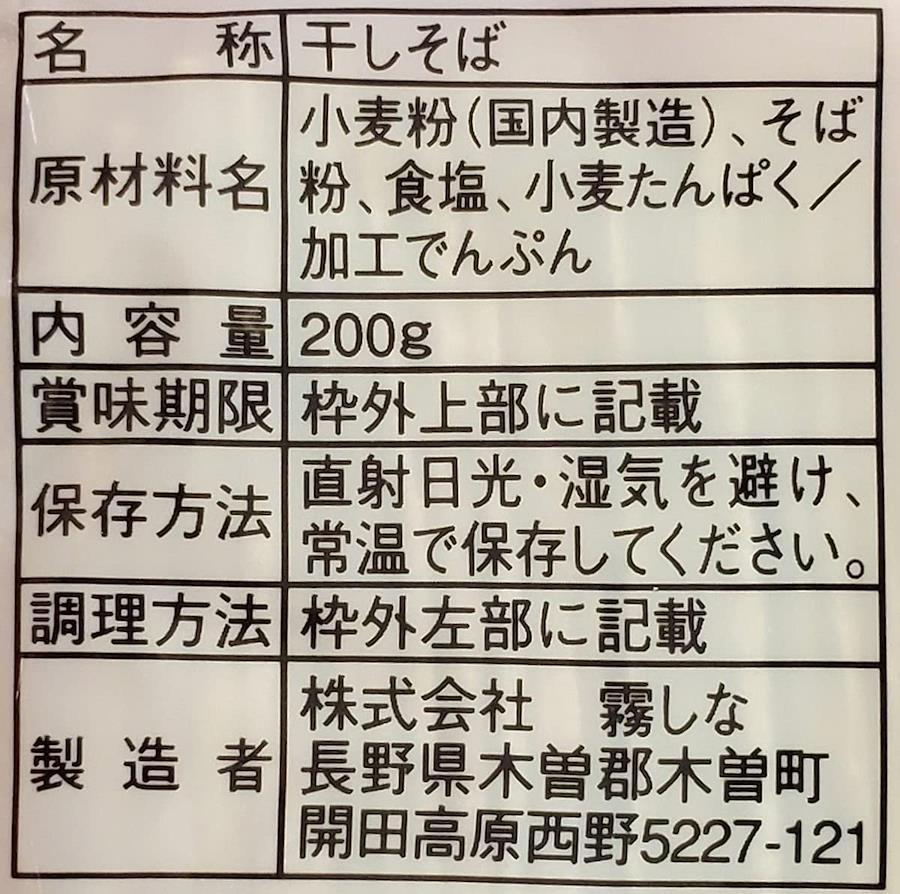 名称 干しそば
原材料名 小麦粉(国内製造)、そば
粉、食塩、小麦たんぱく／
加工でんぷん
内容量 200g
賞味期限 枠外上部に記載
保存方法 直射日光・湿気を避け、
常温で保存してください。
調理方法 枠外左部に記載
製造者 株式会社 霧しな
長野県木曽郡木曽町
開田高原西野5227-121